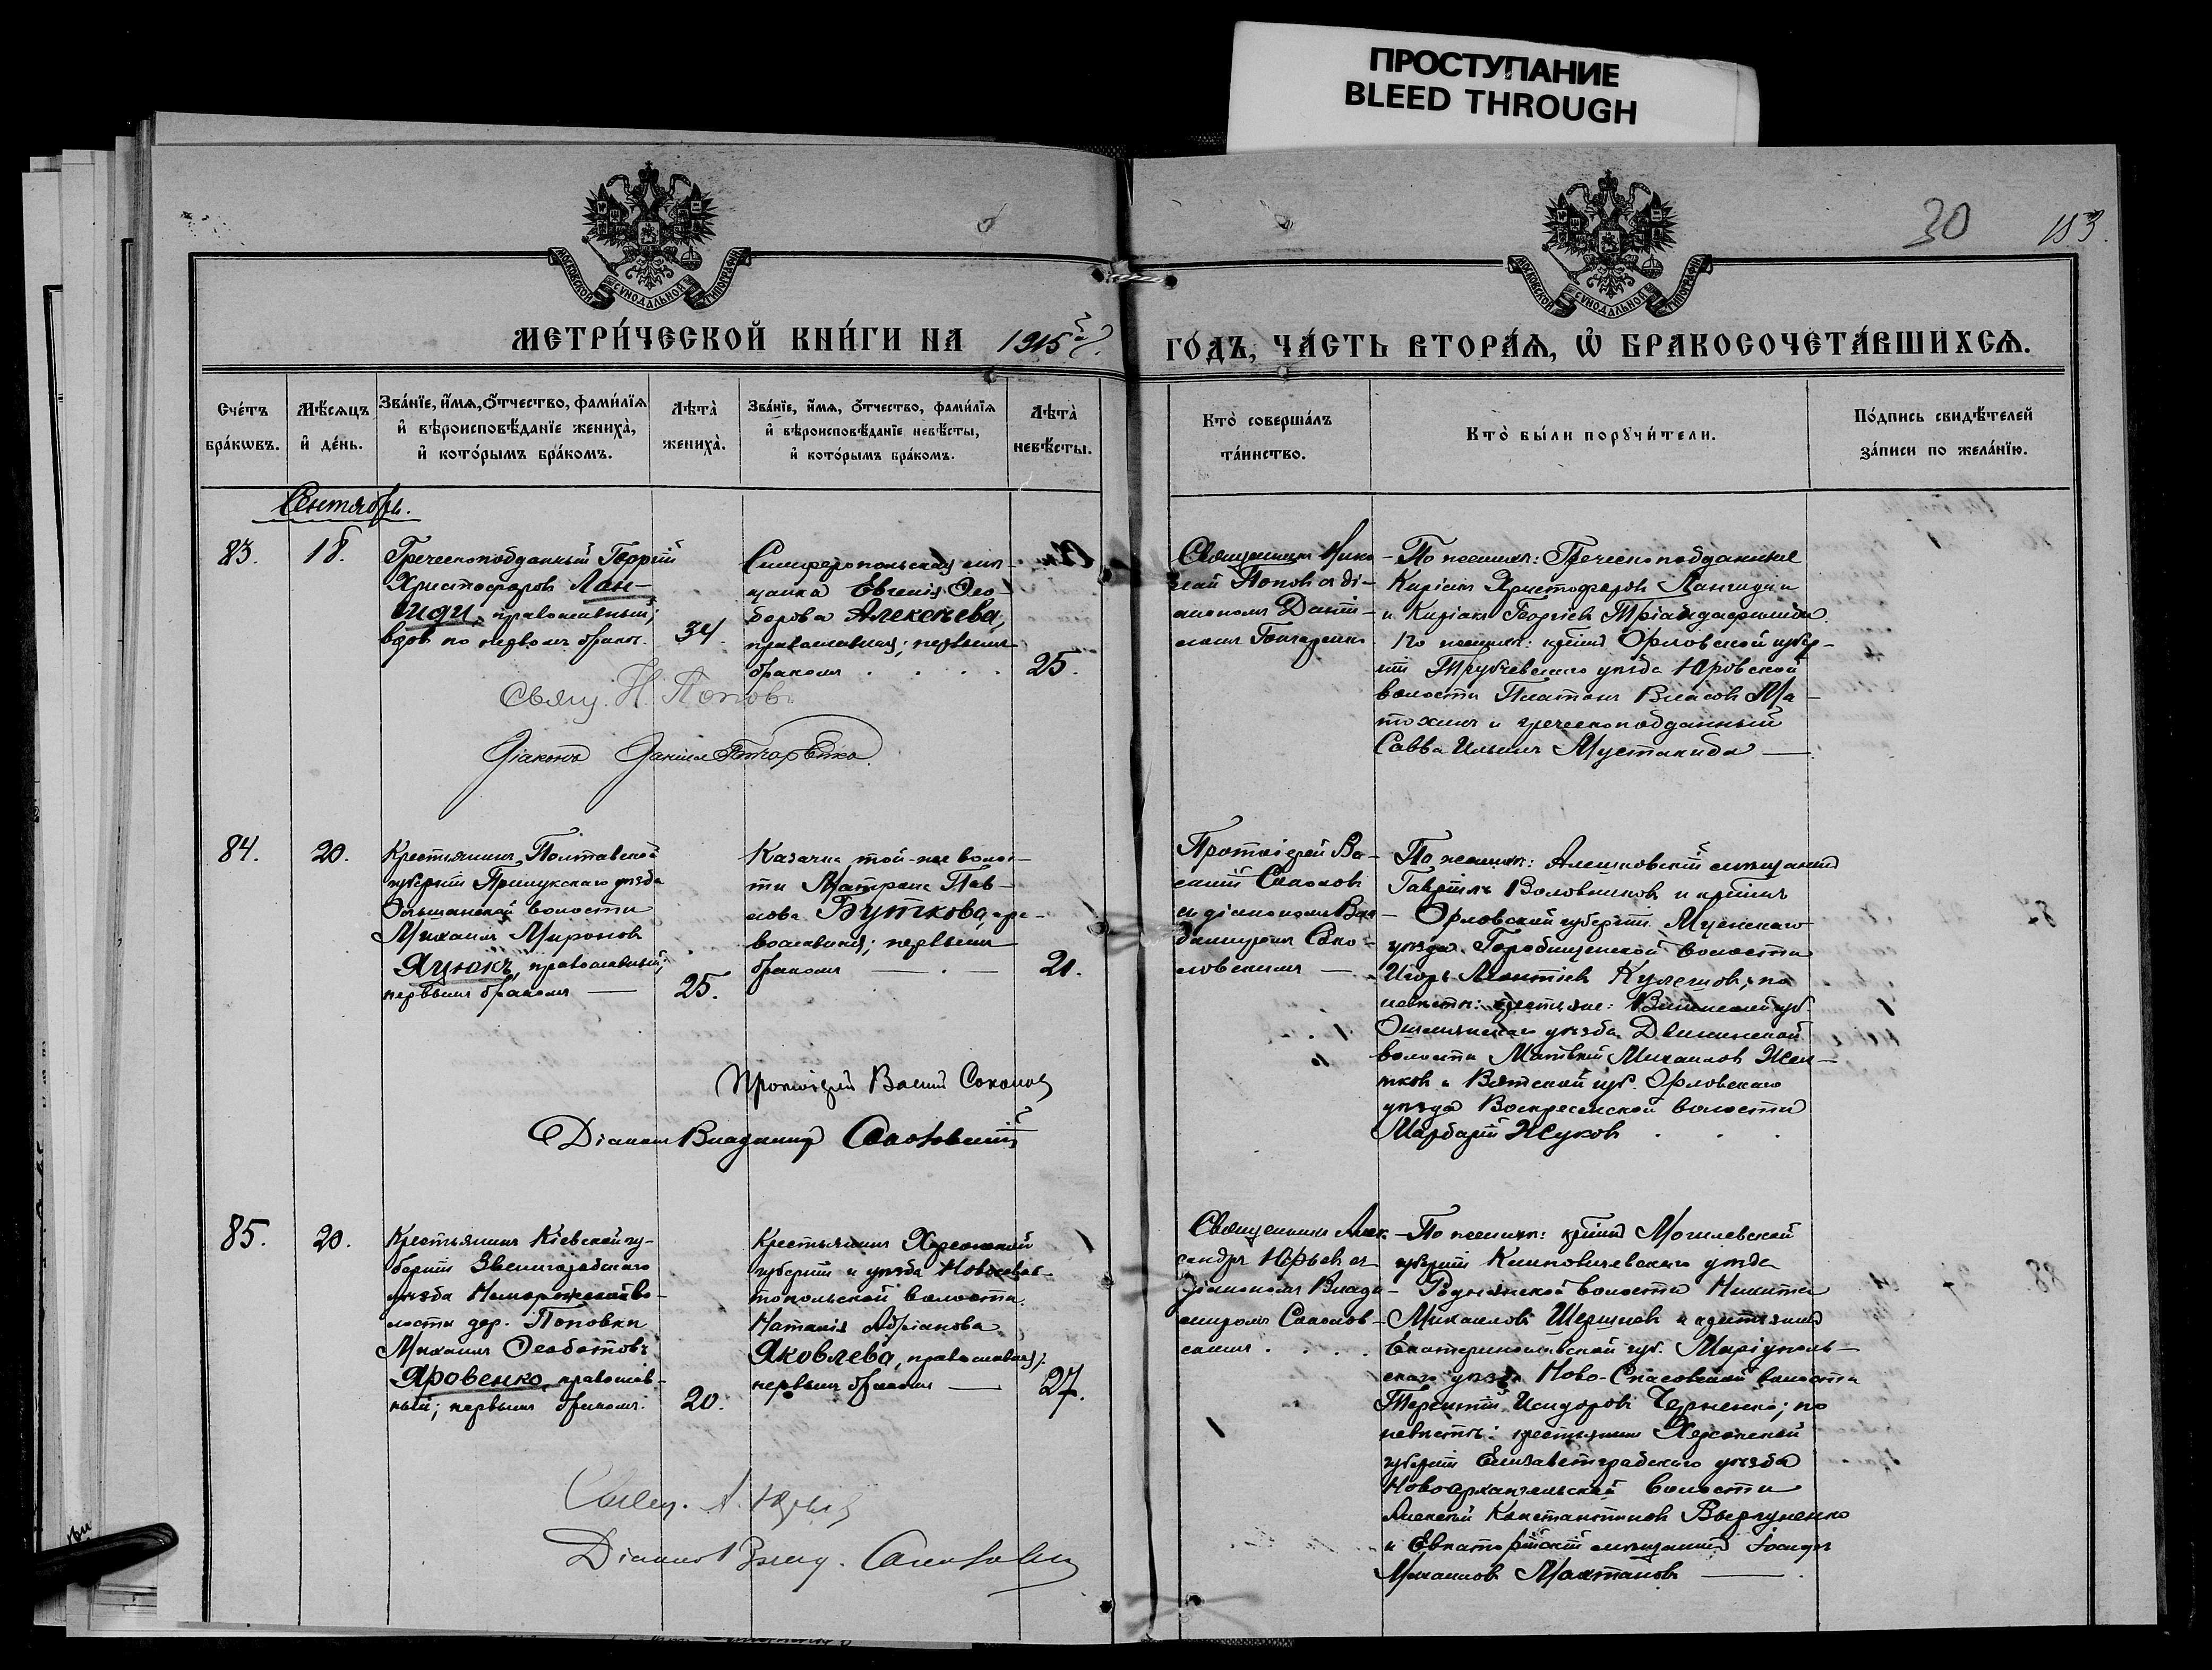 ПРОСТУПАНИЕ
BLEED THROUGH
30
183.
МОСКОВСКОЙ СѴНОДАЛЬНОЙ ТИПОГРАФІИ
МОСКОВСКОЙ СѴНОДАЛЬНОЙ ТИПОГРАФІИ
МЕТРИ́ЧЕСКОЙ КНИ́ГИ НА 1915 г.
ГО́ДЪ, ЧА́СТЬ ВТОРА́Ѧ, Ѡ҆ БРАКОСОЧЕТА́ВШИХСѦ.
Сче́тъ
бра́кѡвъ.
Мѣ́сѧцъ
и҆ де́нь.
Зва́нїе, и҆́мѧ, ѻ҆́тчество, фами́лїѧ
и҆ вѣроисповѣ́данїе жениха̀,
и҆ кото́рымъ бра́комъ.
Лѣта̀
жениха̀.
Зва́нїе, и҆́мѧ, ѻ҆́тчество, фами́лїѧ
и҆ вѣроисповѣ́данїе невѣ́сты,
и҆ кото́рымъ бра́комъ.
Лѣта̀
невѣ́сты.
Кто̀ соверша́лъ
та́инство.
Кто̀ бы́ли порꙋчи́тели.
По́дпись свидѣ́телей
за́писи по жела́нїю.
Сентябрь.
83.
18.
Греческоподданный Георгій
Христофоровъ Лан-
гиди, православный;
вдовъ по первомъ бракѣ.
34.
Симферопольская мѣ-
щанка Евгенія Ѳео-
дорова Алексѣева,
православная; первымъ
бракомъ . . . .
25.
Священникъ Нико-
лай Поповъ съ ді-
акономъ Дані-
иломъ Гончаренко
По женихѣ: Греческоподданные
Киріакъ Христофоровъ Лангиди
и Киріакъ Георгіевъ
по невѣстѣ: кр-нъ Орловской губер-
ніи Трубчевскаго уѣзда Юровской
волости Платонъ Власовъ Ма-
тохинъ и греческоподданный
Савва Ильинъ Мустакиди
Свящ. Н. Поповъ
Діаконъ Даніилъ Гончаренко.
84.
20.
Крестьянинъ Полтавской
губерніи Прилукскаго уѣзда
Ольшанской волости
Михаилъ Мироновъ
Яцюкъ, православный;
первымъ бракомъ
25.
Казачка той-же волос-
ти Матрона Пав-
лова Буткова, пра-
вославная; первымъ
бракомъ
21.
Протоіерей Ва-
силій Соколовъ
съ діакономъ Вла-
диміромъ Соко-
ловскимъ
По женихѣ: Алешковскій мѣщанинъ
Гавріилъ Воловниковъ и кр-нинъ
Орловской губерніи Мценскаго
уѣзда Городищенской волости
Игорь Леонтіевъ Кулешовъ; по
невѣстѣ: крестьяне: Виленской губ.
Ошмянскаго уѣзда
волости Матвѣй Михаиловъ
и Вятской губ. Орловскаго
уѣзда Воскресенской волости
Жуковъ . . .
Протоіерей Василій Соколовъ
Діаконъ Владиміръ Соколовскій
85.
20.
Крестьянинъ Кіевской гу-
берніи Звенигородскаго
уѣзда во-
лости дер. Поповки
Михаилъ Ѳеодотовъ
Яровенко, православ-
ный; первымъ бракомъ.
20.
Крестьянка Херсонской
губерніи и уѣзда Новосевас-
топольской волости
Наталія Адріанова
Яковлева, православная;
первымъ бракомъ
27.
Священникъ Алек-
сандръ Юрьевъ съ
діакономъ Влади-
миромъ Соколов-
скимъ . . . .
По женихѣ: кр-нинъ Могилевской
губерніи Климовичевскаго уѣзда
Роднянской волости Никита
Михаиловъ Шершневъ и крестьянинъ
Екатеринославской губ. Маріуполь-
скаго уѣзда Ново-Спасовской волости
Терентій Исидоровъ Черненко; по
невѣстѣ: крестьянинъ Херсонской
губерніи Елизаветградскаго уѣзда
Новоархангельской волости
Алексѣй Константиновъ Вергуненко
и Евпаторійскій мѣщанинъ
Михаиловъ
Свящ. А. Юрьевъ
Діаконъ Влад. Соколовскій